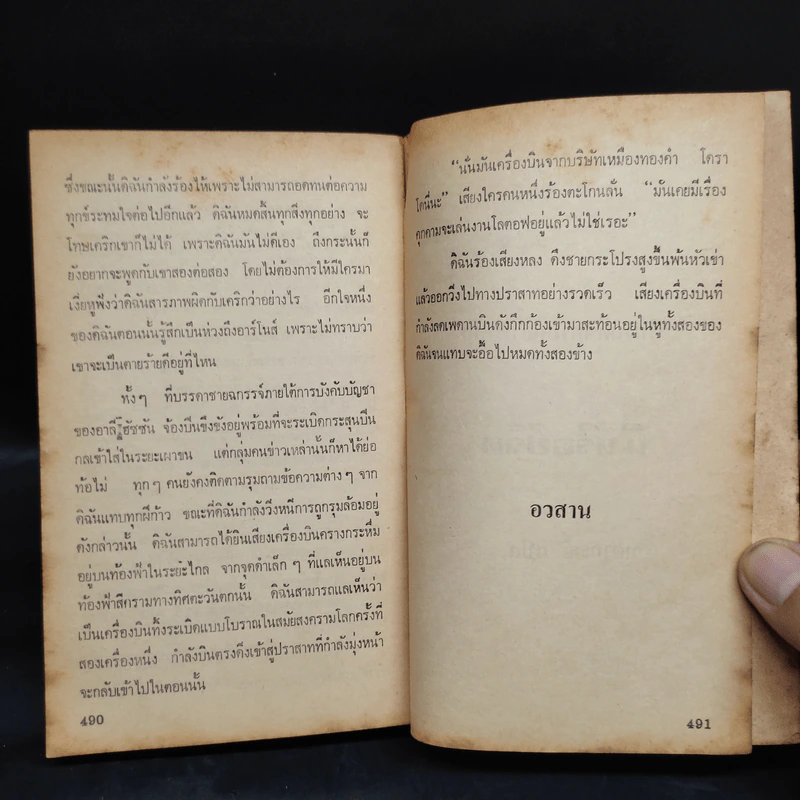 ซึ่งขณะนั้นดิฉันกำลังร้องไห้เพราะไม่สามารถอดทนต่อความ
ทุกข์ระทมใจต่อไปอีกแล้ว ดิฉันหมดสิ้นทุกสิ่งทุกอย่าง จะ
โทษเคริกเขาก็ไม่ได้ เพราะดิฉันมันไม่ดีเอง ถึงกระนั้นก็
ยังอยากจะพูดกับเขาสองต่อสอง โดยไม่ต้องการให้มีใครมา
เงี่ยหูฟังว่าดิฉันสารภาพผิดกับเคริกว่าอย่างไร อีกใจหนึ่ง
ของดิฉันตอนนั้นรู้สึกเป็นห่วงถึงอาร์โนส์ เพราะไม่ทราบว่า
เขาจะเป็นตายร้ายดีอยู่ที่ไหน
ทั้งๆ ที่บรรดาชายฉกรรจ์ภายใต้การบังคับบัญชา
ของอาลี ฮัซซัน จ้องปืนขึงขังอยู่พร้อมที่จะระเบิดกระสุนปืน
กลเข้าใส่ในระยะเผาขน แต่กลุ่มคนข่าวเหล่านั้นก็หาได้ย่อ
ท้อไม่ ทุกๆ คนยังคงติดตามรุมถามข้อความต่างๆ จาก
ดิฉันแทบทุกฝีก้าว ขณะที่ดิฉันกำลังวิ่งหนีการถูกรุมล้อมอยู่
ดังกล่าวนั้น ดิฉันสามารถได้ยินเสียงเครื่องบินครางกระหึ่ม
อยู่บนท้องฟ้าในระยะไกล จากจุดดำเล็กๆ ที่แลเห็นอยู่บน
ท้องฟ้าสีครามทางทิศตะวันตกนั้น ดิฉันสามารถแลเห็นว่า
เป็นเครื่องบินทิ้งระเบิดแบบโบราณในสมัยสงครามโลกครั้งที่
สองเครื่องหนึ่ง กำลังบินตรงดิ่งเข้าสู่ปราสาทที่กำลังมุ่งหน้า
จะกลับเข้าไปในตอนนั้น
490
“นั่นมันเครื่องบินจากบริษัทเหมืองทองคำ โครา
โดนี่นะ” เสียงใครคนหนึ่งร้องตะโกนลั่น “มันเคยมีเรื่อง
คุกคามจะเล่นงานโลตอฟอยู่แล้วไม่ใช่เรอะ”
ดิฉันร้องเสียงหลง ดึงชายกระโปรงสูงขึ้นพ้นหัวเข่า
แล้วออกวิ่งไปทางปราสาทอย่างรวดเร็ว เสียงเครื่องบินที่
กำลังลดเพดานบินดังกึกก้องเข้ามาสะท้อนอยู่ในหูทั้งสองของ
ดิฉันจนแทบจะอื้อไปหมดทั้งสองข้าง
อวสาน
491